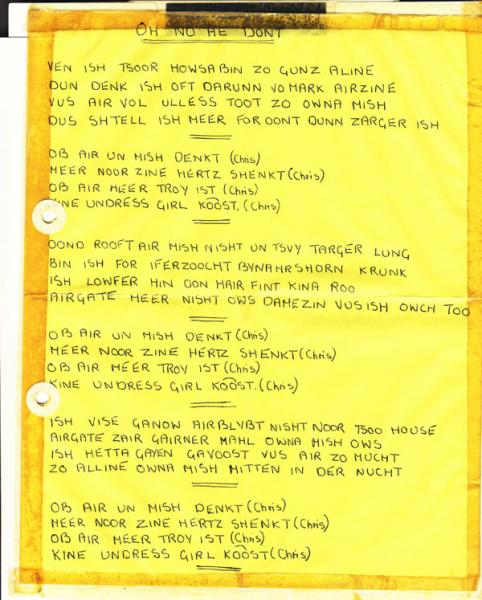 OH NO HE DONT
VEN ISH TSOOR HOWSABIN ZO GUNZ ALINE
DUN DENK ISH OFT DARUNN VO MARK AIRZINE
VUS AIR VOL ULLESS TOOT ZO OWNA MISH
DUS SHTELL ISH MEER FOR OONT DUNN ZARGER ISH
OB AIR UN MISH DENKT (Chris)
MEER NOOR ZINE HERTZ SHENKT (Chris)
OB AIR MEER TROY IST (Chris)
KINE UNDRESS GIRL KOOST. (Chris)
OOND ROOFT AIR MISH NISHT UN TSVY TARGER LUNG
BIN ISH FOR IFERZOOCHT BYNAHRSHORN KRUNK
ISH LOWFER HIN OON HAIR FINT KINA ROO
AIRGATE MEER NISHT OWS DAMEZIN VUS ISH OWCH TOO
OB AIR UN MISH DENKT (Chris)
MEER NOOR ZINE HERTZ SHENKT (Chris)
OB AIR MEER TROY IST (Chris)
KINE UNDRESS GIRL KOOST. (Chris)
ISH VISE GANOW AIRBLYBT NISHT NOOR TSOO HOUSE
AIRGATE ZAIR GAIRNER MAHL OWNA MISH OWS
ISH HETTA GAYEN GAVOOST VUS AIR ZO MUCHT
ZO ALLINE OWNA MISH MITTEN IN DER NUCHT
OB AIR UN MISH DENKT (Chris)
MEER NOOR ZINE HERTZ SHENKT (Chris)
OB AIR MEER TROY IST (Chris)
KINE UNDRESS GIRL KOOST (Chris)